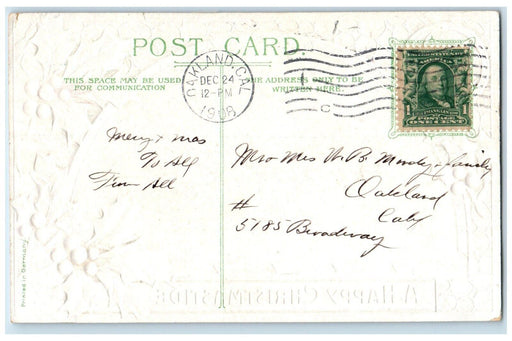 POST CARD.
THIS SPACE MAY BE USED
FOR COMMUNICATION
THE ADDRESS ONLY TO BE
WRITTEN HERE.
OAKLAND, CAL
DEC 24
12-PM
1908
C
POSTAGE
ONE CENT
Merry Xmas
To All
From All
Mr & Mrs W. B.
& Family
Oakland
Calif
#
5185 Broadway
Printed in Germany
A HAPPY CHRISTMASTIDE